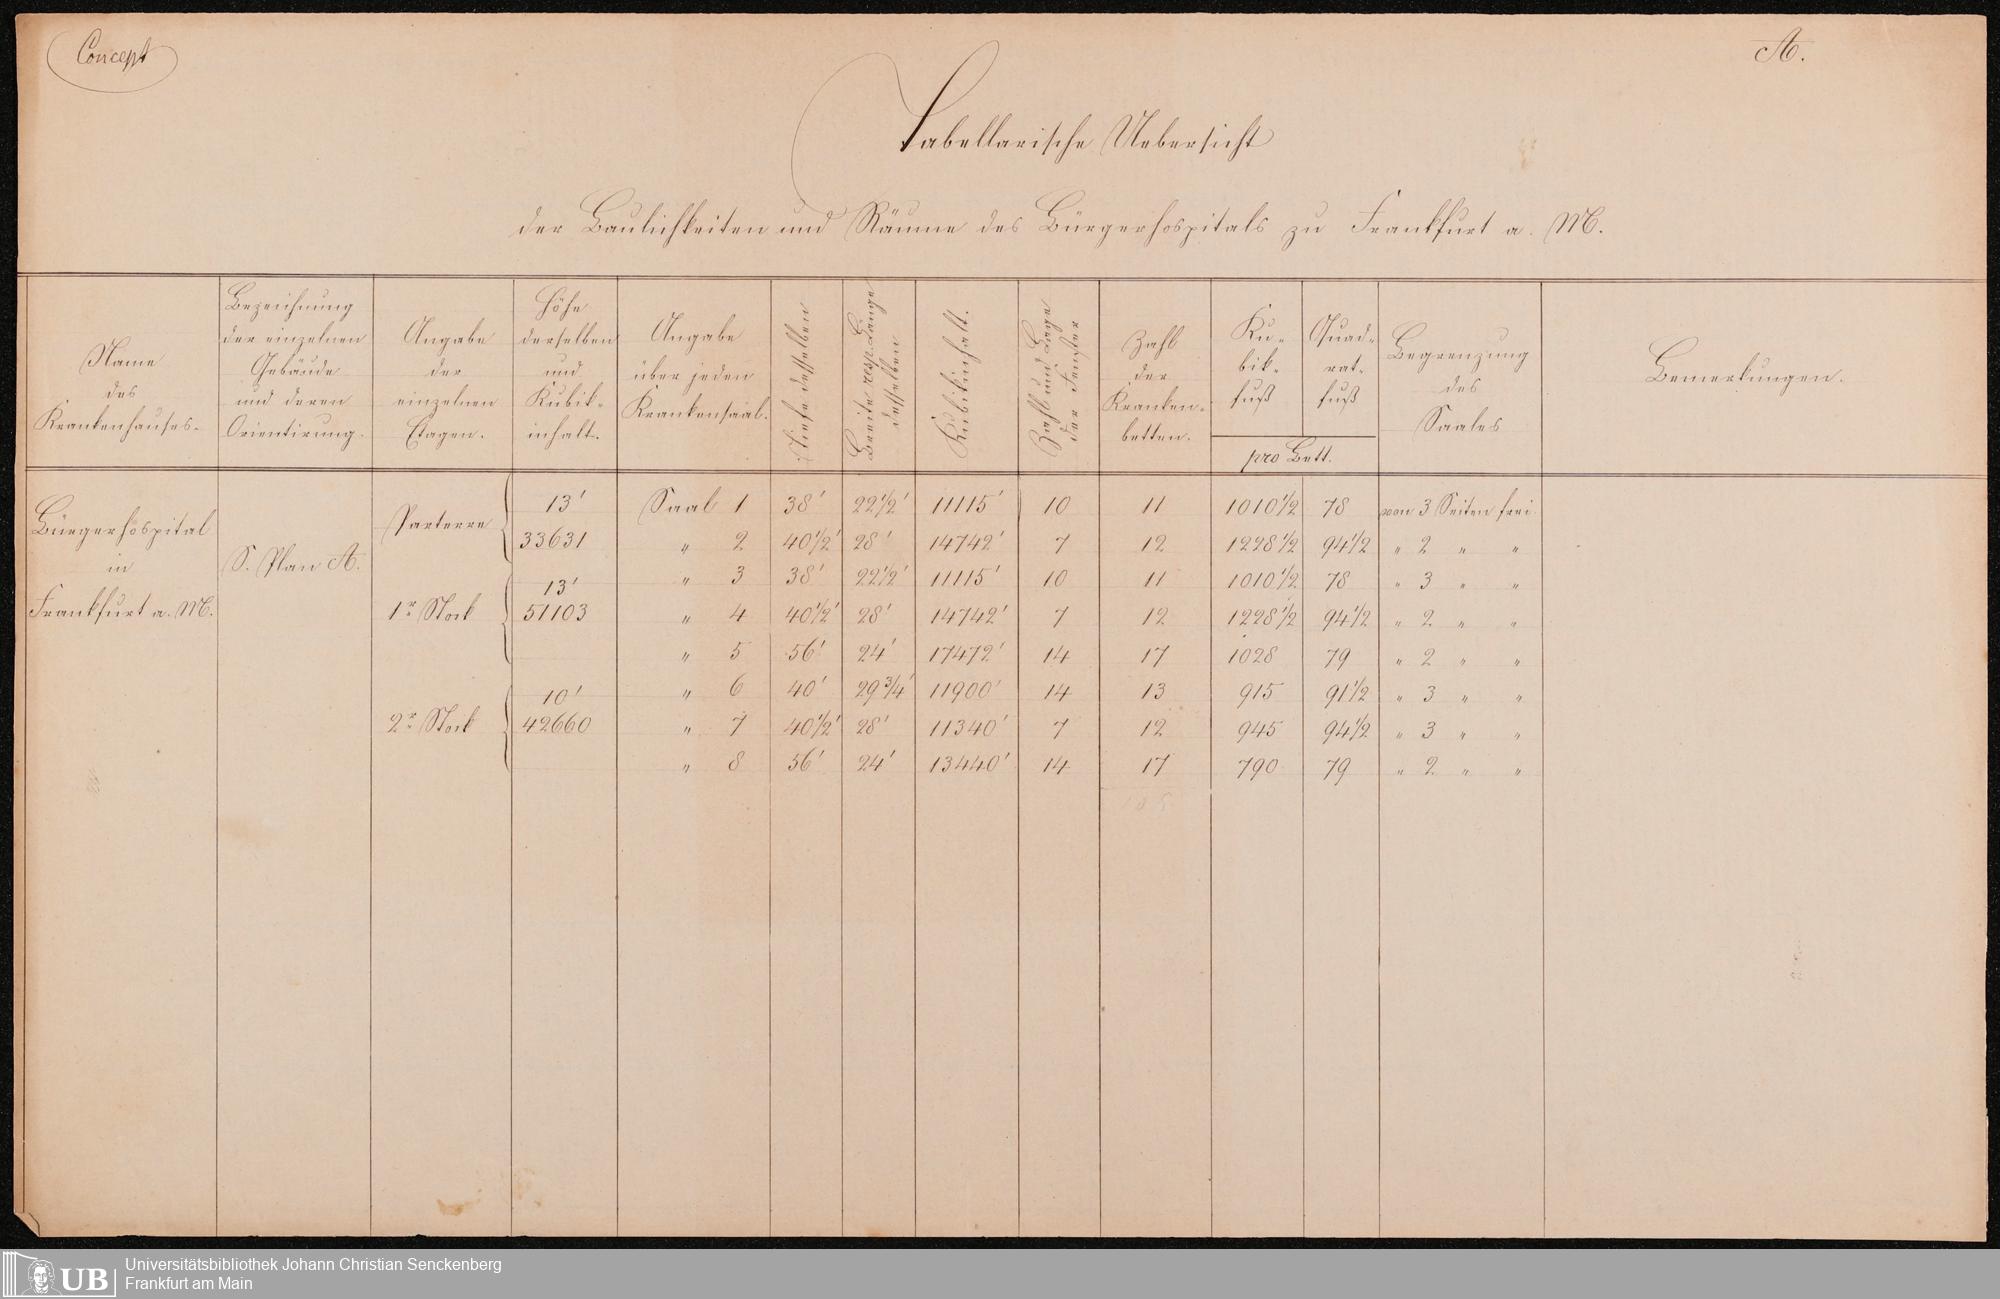 Concept
A.
Tabellarische Uebersicht
der Baulichkeiten und Räume des Bürgerhospitals zu Frankfurt a. M.
Name
des
Krankenhauses.
Bezeichnung
der einzelnen
Gebäude
und deren
Orientirung.
Angabe
der
einzelnen
Etagen.
Höhe
derselben
und
Kubik-
inhalt.
Angabe
über jeden
Krankensaal.
Tiefe desselben
Breite resp. Länge
desselben
Kubikinhalt.
Zahl und Lage
der Fenster
Zahl
der
Kranken-
betten.
Ku-
bik-
fuß
Quad-
rat-
fuß
pro Bett.
Begrenzung
des
Saales
Bemerkungen.
Bürgerhospital
in
Frankfurt a. M.
S. Plan A.
Parterre
13'
33631
1r Stock
13'
51103
2r Stock
10'
42660
Saal 1 38' 22 1/2' 11115' 10 11 1010 1/2 78 von 3 Seiten frei
" 2 40 1/2' 28' 14742' 7 12 1228 1/2 94 1/2 " 2 " "
" 3 38' 22 1/2' 11115' 10 11 1010 1/2 78 " 3 " "
" 4 40 1/2' 28' 14742' 7 12 1228 1/2 94 1/2 " 2 " "
" 5 56' 24' 17472' 14 17 1028 79 " 2 " "
" 6 40' 29 3/4' 11900' 14 13 915 91 1/2 " 3 " "
" 7 40 1/2' 28' 11340' 7 12 945 94 1/2 " 3 " "
" 8 56' 24' 13440' 14 17 790 79 " 2 " "
105
UB
Universitätsbibliothek Johann Christian Senckenberg
Frankfurt am Main